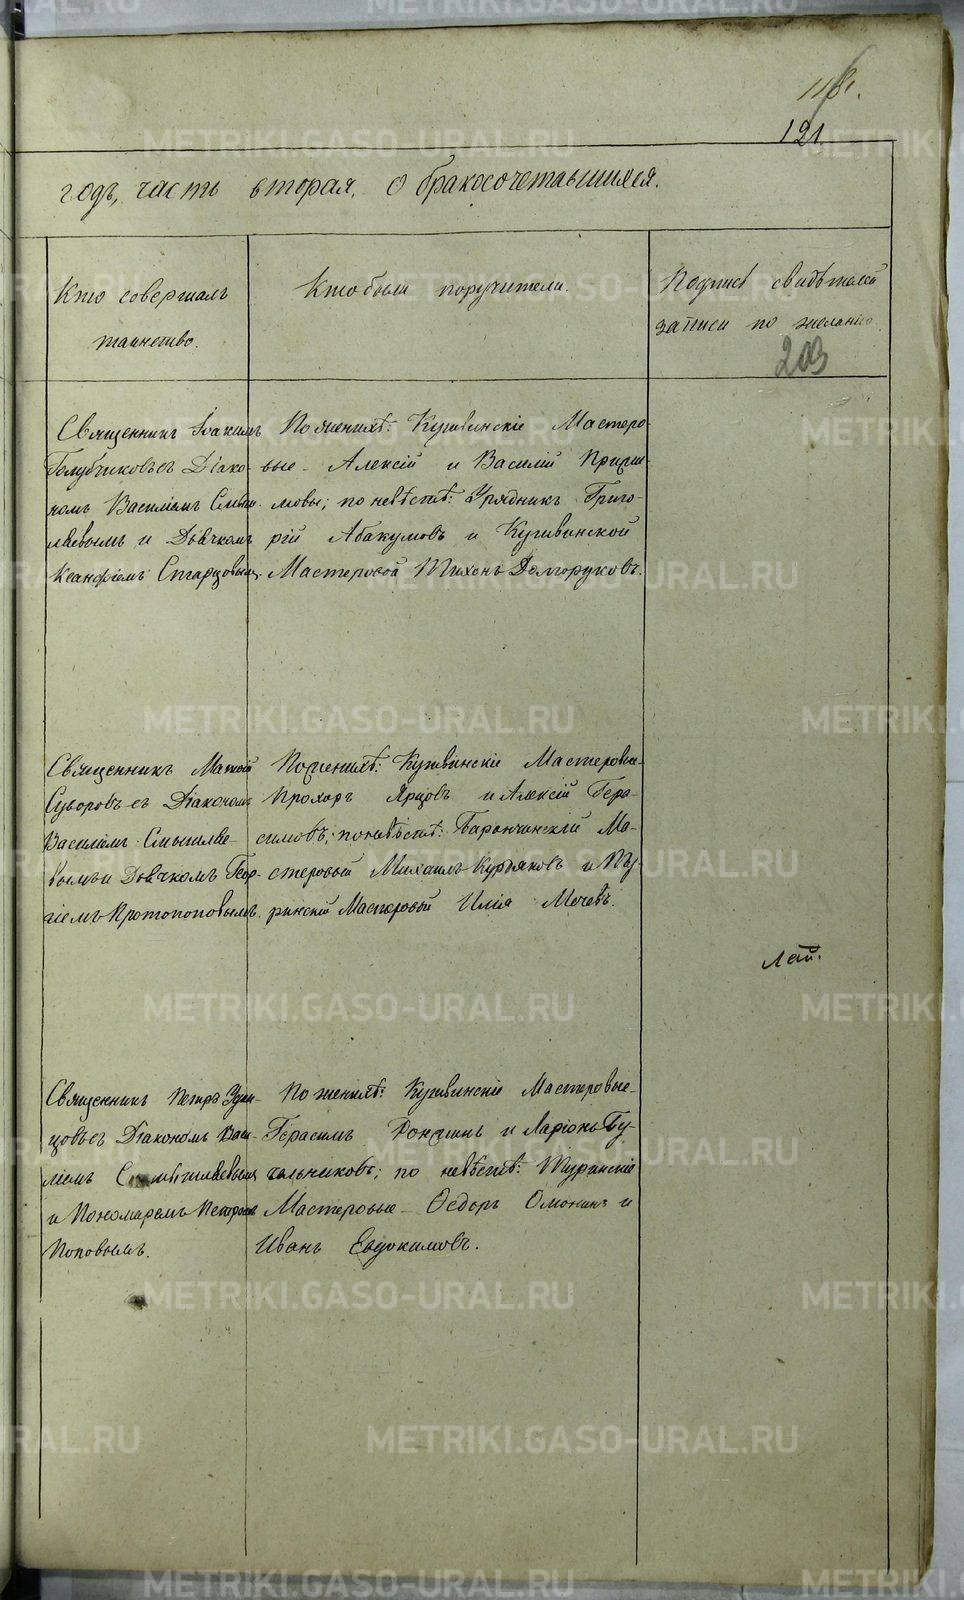 121.
годъ, часть вторая, о бракосочетавшихся.
Кто совершалъ
таинство.
Кто были поручители.
Подпись свидѣтелей
записи по желанію.
203
Священникъ Іоакимъ
Голубчиковъ съ Діако-
номъ Василіемъ
и Дьячкомъ
Старцовымъ.
По женихѣ: Кушвинскіе Мастеро-
вые Алексій и Василій
по невѣстѣ: Урядникъ Григо-
рій Абакумовъ и Кушвинской
Мастеровой Тихонъ Долгоруковъ.
Священникъ Матѳій
Суворовъ съ Діакономъ
Василіемъ Смышляе-
вымъ и Дьячкомъ Геор-
гіемъ Протопоповымъ.
По женихѣ: Кушвинскіе Мастеровые
Прохоръ Ярцовъ и Алексій Гера-
симовъ; по невѣстѣ: Баранчинскій Ма-
стеровый Михаилъ Курдяковъ и Ту-
ринскій Мастеровый Илія Мочевъ.
Священникъ Петръ
съ Діакономъ Васи-
ліемъ Смышляевымъ
и Пономаремъ Петромъ
Поповымъ.
По женихѣ: Кушвинскіе Мастеровые
Герасимъ и Ларіонъ Бу-
тыльниковъ; по невѣстѣ: Туринскіе
Мастеровые Ѳедоръ Ѳомкинъ и
Иванъ Евдокимовъ.
METRIKI.GASO-URAL.RU